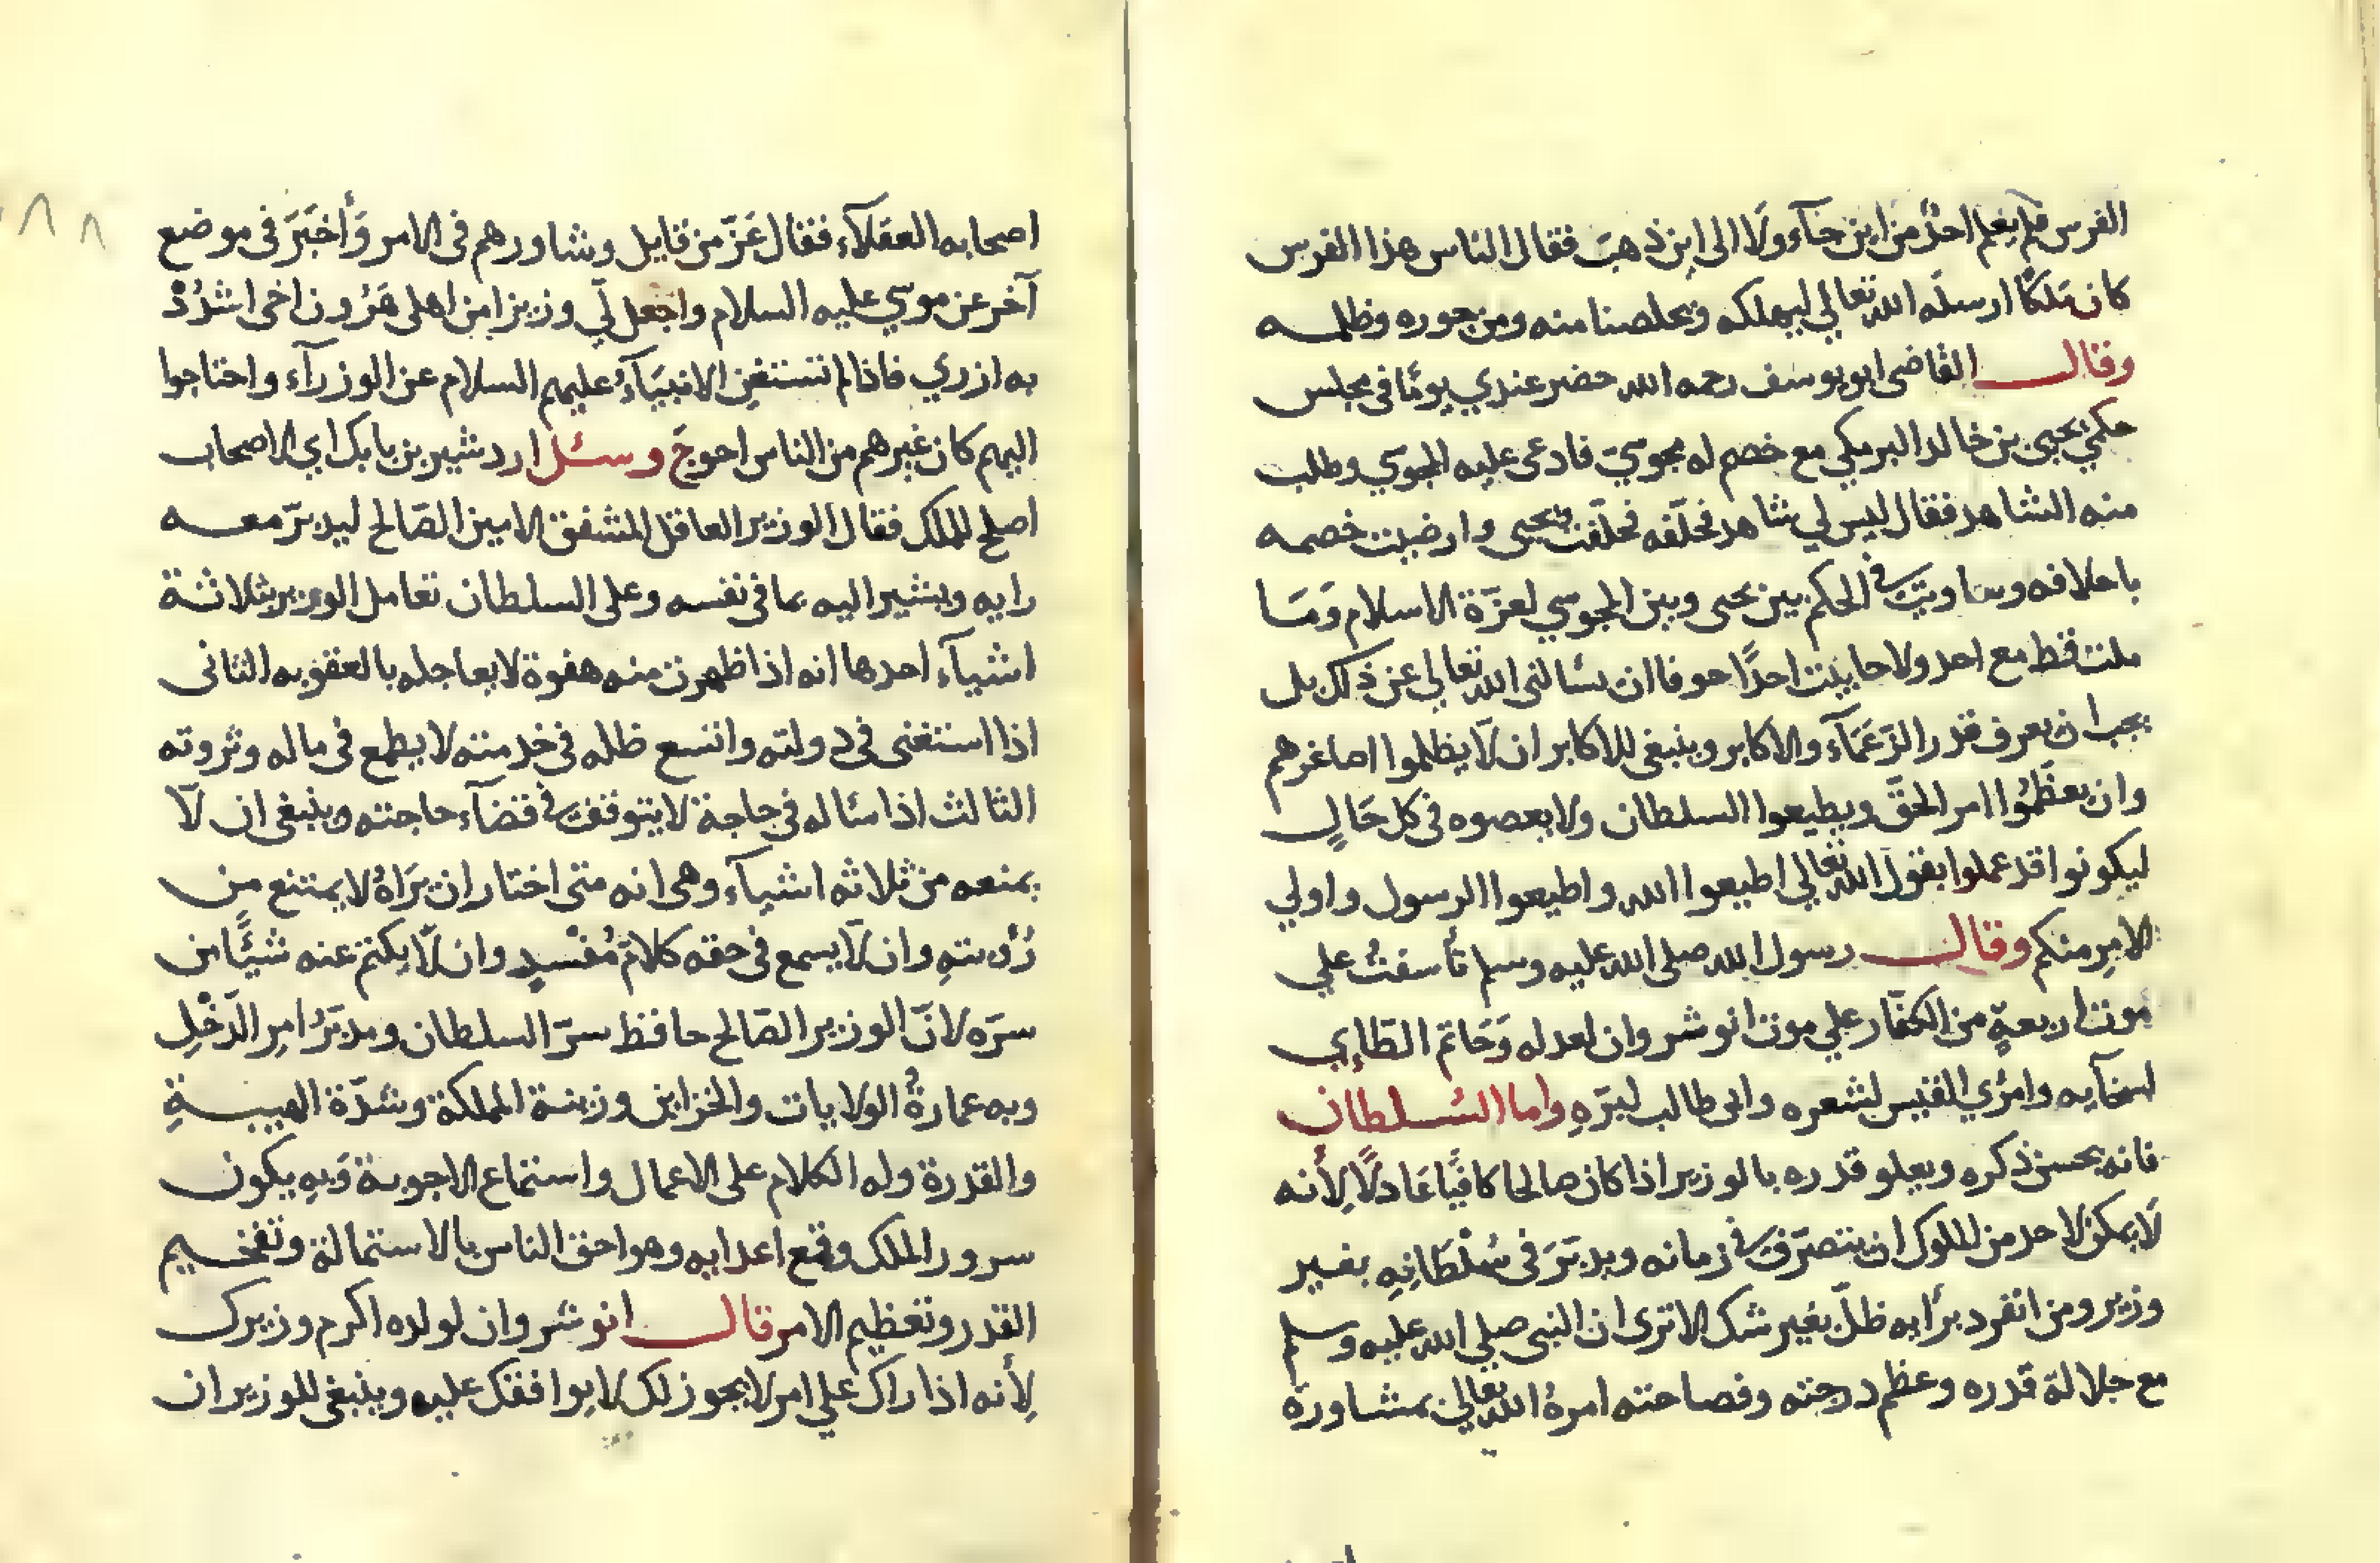 الفرس فلم يعلم احدٌ من اين جآء ولا الى اين ذهبت فقال الناس هذا الفرس
كان ملكًا ارسله الله تعالي ليهلكه ويخلصنا منه ومن جوره وظلمه
وقال القاضى ابو يوسف رحمه الله حضر عندي يومًا فى مجلس
حكمي يحيى بن خالد البرمكي مع خصم له مجوسيّ فادعى عليه المجوسي وطلب
منه الشاهد فقال ليس لي شاهد فحلّفه فحلّفت يحيى وارضيت خصمه
باحلافه وساويت فى الحكم بين يحيى وبين المجوسي لعزّة الاسلام وَمَا
ملت قط مع احد ولا حابيت احدًا خوفا ان يسالنى الله تعالي عن ذلك بل
يجب ان يعرف قدر الزعمَآء والاكابر وينبغى للاكابر ان لا يظلموا اصاغرهم
وان يعظّمُوا امر الحقّ ويطيعوا السلطان ولا يعصوه فى كل حَالٍ
ليكونوا قد عملوا بقول الله تعالي اطيعوا الله واطيعوا الرسول واولي
الامرِ منكم وقال رسول الله صلى الله عليه وسلم تأسفتُ علي
موت اربعةٍ من الكفّار علي موت انوشروان لعدله وَحَاتم الطّاءِي
لسخآيه وامرُي القيس لشعره وابى طالب لبرّهِ واما السُلطان
فانه يحسن ذكره ويعلو قدره بالوزير اذا كان صالحا كافيًا عَادلًا لِأنه
لَا يمكن لاحد من الملوك ان يتصرّف فى زمانه ويدبّرَ فى سُلْطَانِهِ بغير
وزير ومن انفرد برأيه ظلّ بغير شك الا ترى ان النبى صلي الله عليه وسلم
مع جلالة قدره وعظم درجته وفصاحته امرهُ الله تعالي بمشاورة
اصحابه العقلآء فقال عَزّ من قايل وشاورهم فى الامر وَأَخبَرَ فى موضع
آخر عن موسي عليه السلام واجعل لّي وزيرا من اهلى هَرُون اخى اشدُدْ
به ازري فاذا لم تستغنِ الانبيَآءُ عليهم السلام عن الوزرآء واحتاجوا
اليهم كان غيرهم من الناس احوجَ وسئل اردشير بن بابك اي الاصحاب
اصلح للملك فقال الوزير العاقل المشفق الامين الصّالح ليدبرّ معه
رايه ويشير اليه بما فى نفسه وعلى السلطان تعامل الوزير بثلاثة
اشيآء احدها انه اذا ظهرت منه هفوة لا يعاجله بالعقوبه الثانى
اذا استغنى فى دولته واتسع ظله فى خدمته لا يطمع فى ماله وثروته
الثالث اذا سَاله فى حاجة لا يتوقف فى قضآء حاجته وينبغى ان لَا
يمنعه من ثلاثه اشيآء وهى انه متى اختار ان يَرَاهُ لا يمتنع من
رُؤيتهِ وان لَا يسمع فى حقه كلامَ مُفْسِدٍ وان لَا يكتم عنه شيئًا من
سرّه لانّ الوزير الصّالح حافظ سرّ السلطان ومدبّرُ امرِ الدّخْلِ
وبه عمارةُ الولايات والخزاين وزينة المملكة وشدّة الهيبةِ
والقدرة وله الكلام على الاعمال واستماع الاجوبة وَبهِ يكون
سرور الملك وقمع اعدايه وهو احق الناس بالاستمالة وتفخيم
القدر وتعظيم الامر قال انوشروان لولده اكرم وزيرك
لِأنه اذا راك علي امر لا يجوز لك لا يوافقك عليه وينبغى للوزير ان